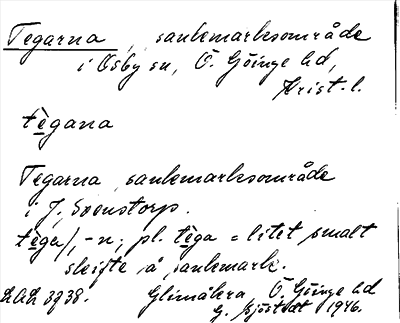 Tegarna, sankmarksområde
i Osby sn, Ö. Göinge hd,
Krist. l.
tègana
Tegarna sankmarksområde
i J. Svenstorp.
tèga/, -n; pl. tèga = litet smalt
skifte å sankmark.
LAL 3938. Glimåkra Ö. Göinge hd
G. Sjöstedt 1946.